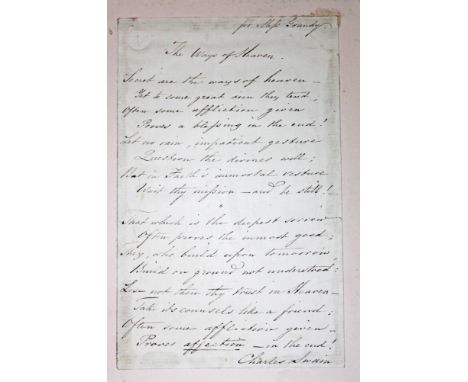 for Miss Grundy.
The Ways of Heaven.
Secret are the ways of heaven —
Yet to some great aim they tend,
Often some affliction given
Proves a blessing in the end!
Let no vain, impatient gesture
Question the divines will;
But in Faith's immortal vesture
Wait thy mission — and be still!
That which is the deepest sorrow
Often proves the inmost good;
They, who build upon tomorrow,
Build on ground not understood:
Lose not then thy trust in Heaven —
Take its counsels like a friend;
Often some affliction given —
Proves affection — in the end!
Charles Swain